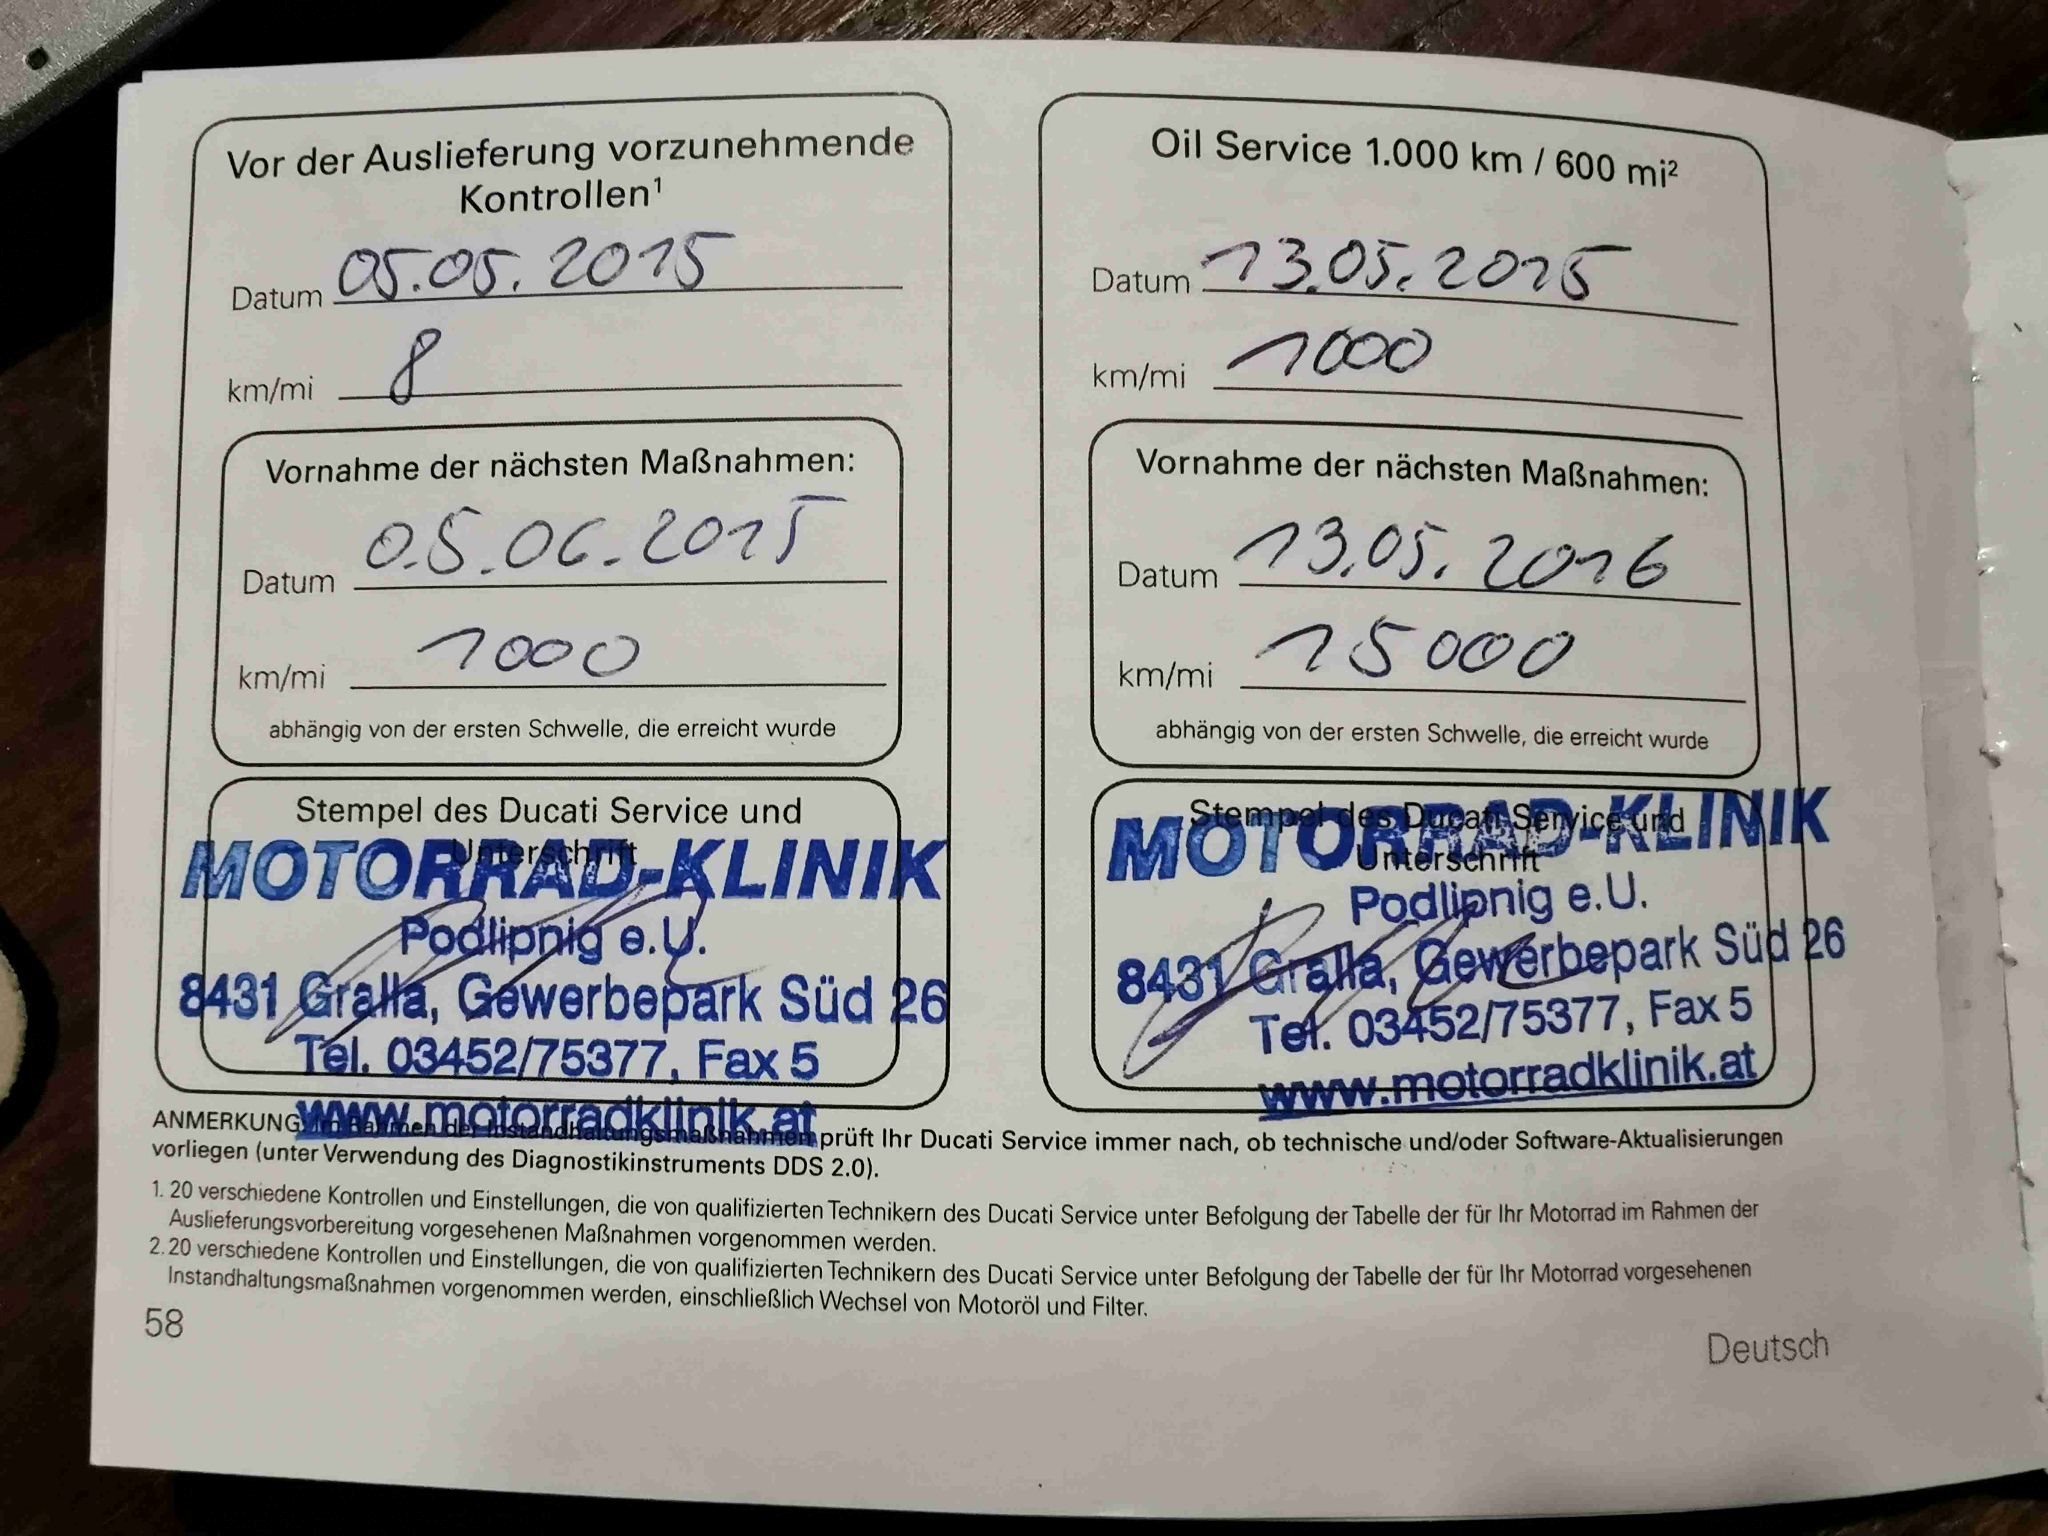 Vor der Auslieferung vorzunehmende
Kontrollen¹
Datum 05.05.2015
km/mi 8
Vornahme der nächsten Maßnahmen:
Datum 05.06.2015
km/mi 1000
abhängig von der ersten Schwelle, die erreicht wurde
Stempel des Ducati Service und
Unterschrift
MOTORRAD-KLINIK
Podlipnig e.U.
8431 Gralla, Gewerbepark Süd 26
Tel. 03452/75377, Fax 5
www.motorradklinik.at
Oil Service 1.000 km / 600 mi²
Datum 13.05.2015
km/mi 1000
Vornahme der nächsten Maßnahmen:
Datum 13.05.2016
km/mi 15000
abhängig von der ersten Schwelle, die erreicht wurde
Stempel des Ducati Service und
Unterschrift
MOTORRAD-KLINIK
Podlipnig e.U.
8431 Gralla, Gewerbepark Süd 26
Tel. 03452/75377, Fax 5
www.motorradklinik.at
ANMERKUNG: Im Rahmen der Instandhaltungsmaßnahmen prüft Ihr Ducati Service immer nach, ob technische und/oder Software-Aktualisierungen
vorliegen (unter Verwendung des Diagnostikinstruments DDS 2.0).
1. 20 verschiedene Kontrollen und Einstellungen, die von qualifizierten Technikern des Ducati Service unter Befolgung der Tabelle der für Ihr Motorrad im Rahmen der
Auslieferungsvorbereitung vorgesehenen Maßnahmen vorgenommen werden.
2. 20 verschiedene Kontrollen und Einstellungen, die von qualifizierten Technikern des Ducati Service unter Befolgung der Tabelle der für Ihr Motorrad vorgesehenen
Instandhaltungsmaßnahmen vorgenommen werden, einschließlich Wechsel von Motoröl und Filter.
58
Deutsch